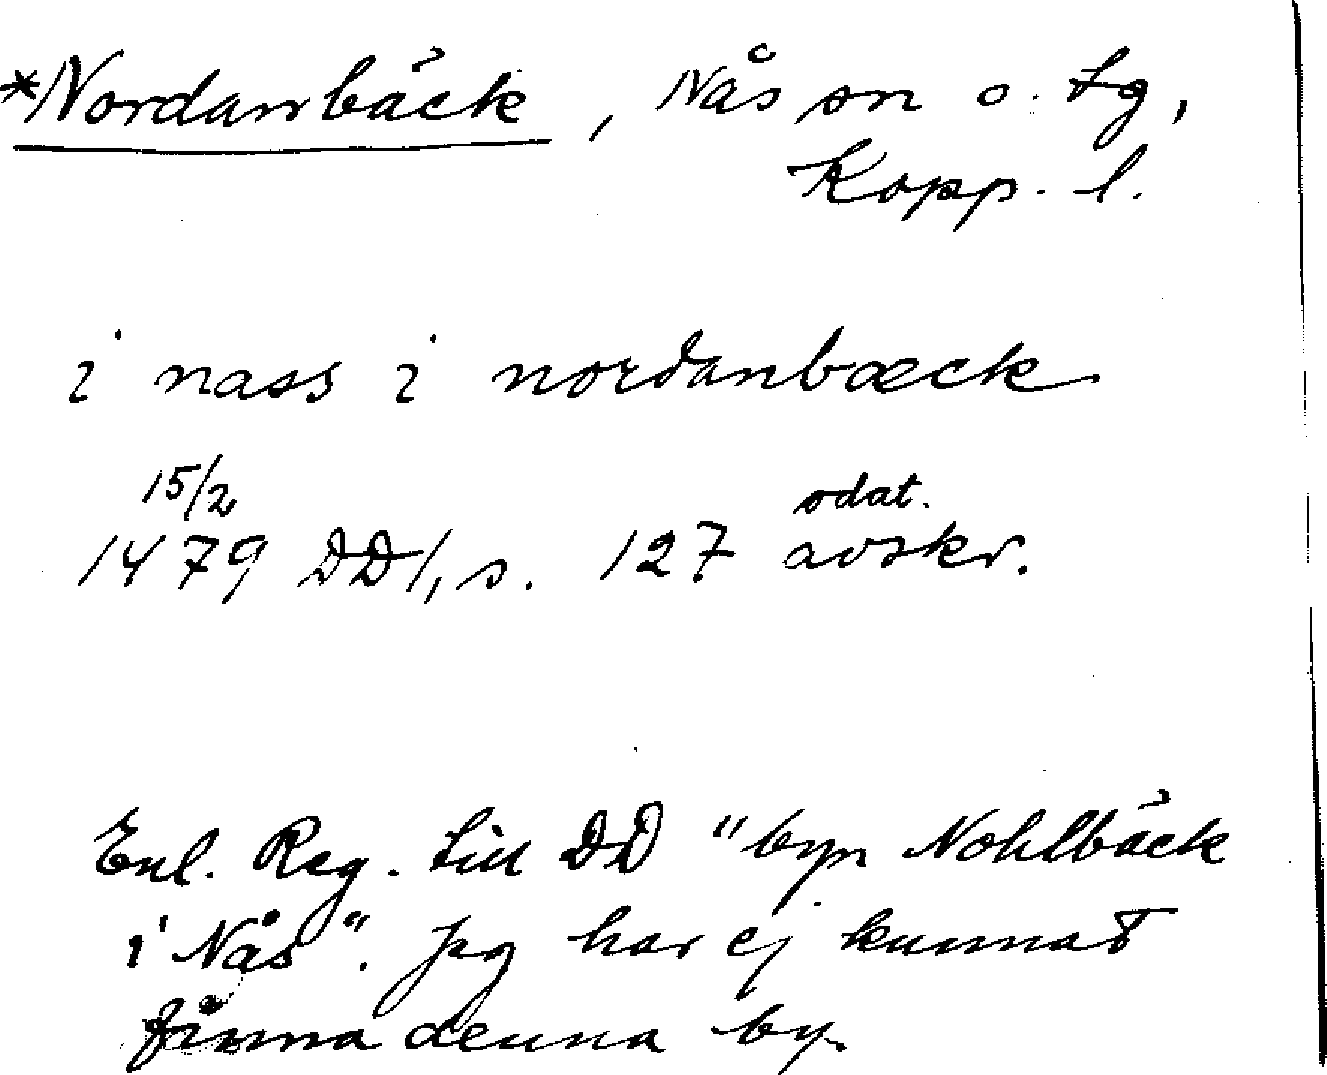 *Nordanbäck, Nås sn o. tg,
Kopp. l.
i nass i nordanbæck
15/2 odat.
1479 DD1, s. 127 avskr.
Enl. Reg. till DD "byn Nohlbäck
i Nås". Jag har ej kunnat
finna denna by.